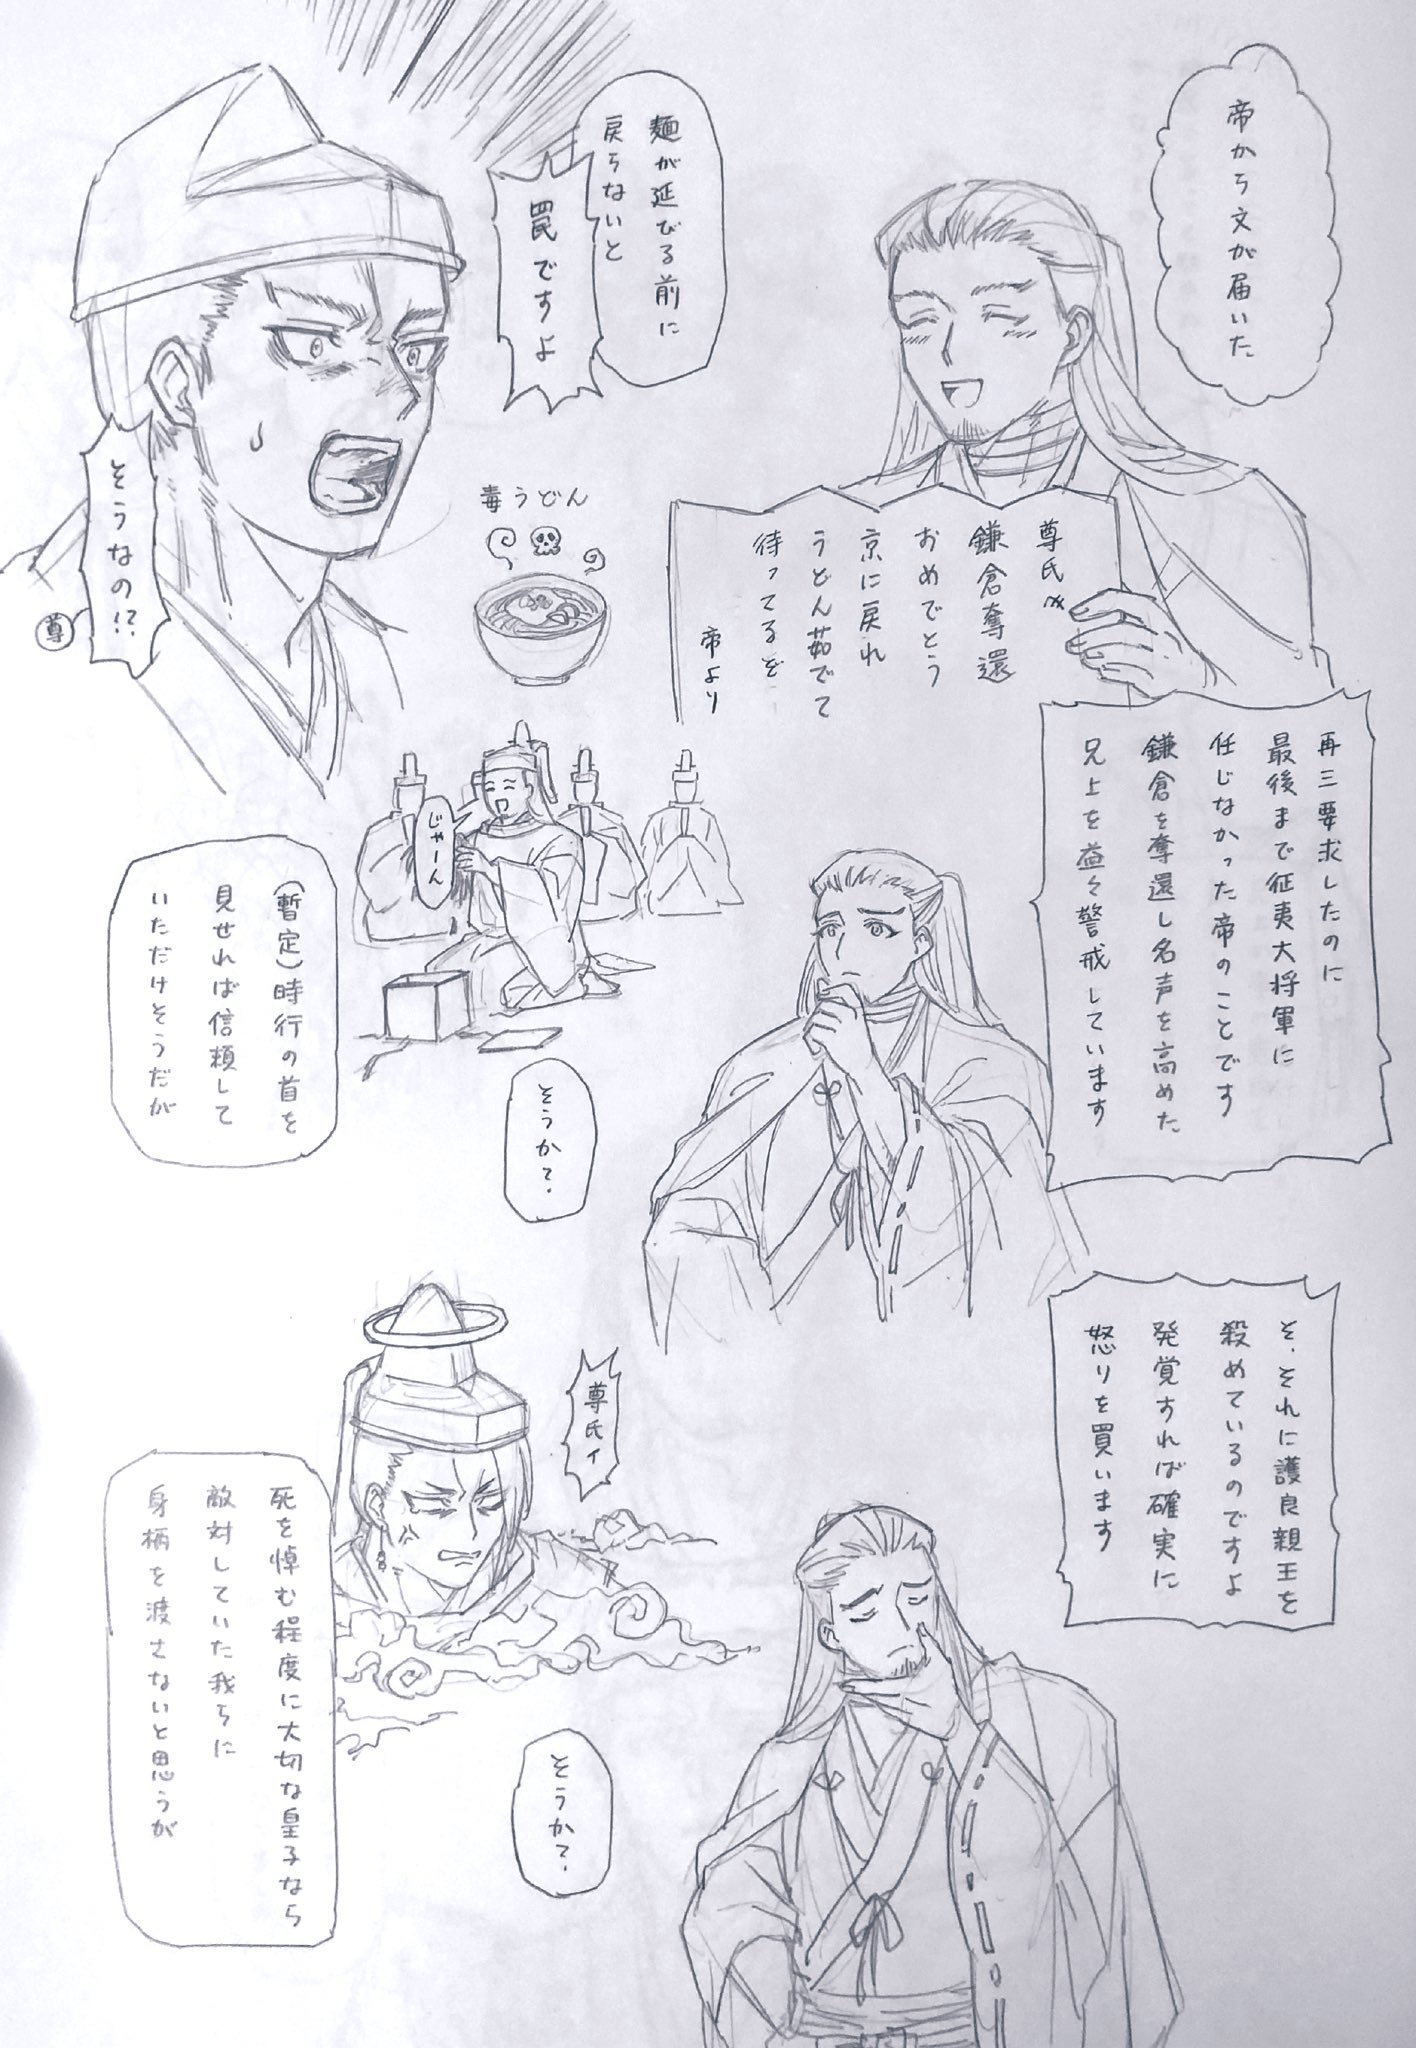 帝から文が届いた
尊氏メ
鎌倉奪還
おめでとう
京に戻れ
うどん茹でて
待ってるぞ
帝より
麺が延びる前に
戻らないと
罠ですよ
そうなの!?
尊
毒うどん
再三要求したのに
最後まで征夷大将軍に
任じなかった帝のことです
鎌倉を奪還し名声を高めた
兄上を益々警戒しています
じゃーん
そうか?
(暫定)時行の首を
見せれば信頼して
いただけそうだが
そ、それに護良親王を
殺めているのですよ
発覚すれば確実に
怒りを買います
尊氏ィ
そうか?
死を悼む程度に大切な皇子なら
敵対していた我らに
身柄を渡さないと思うが